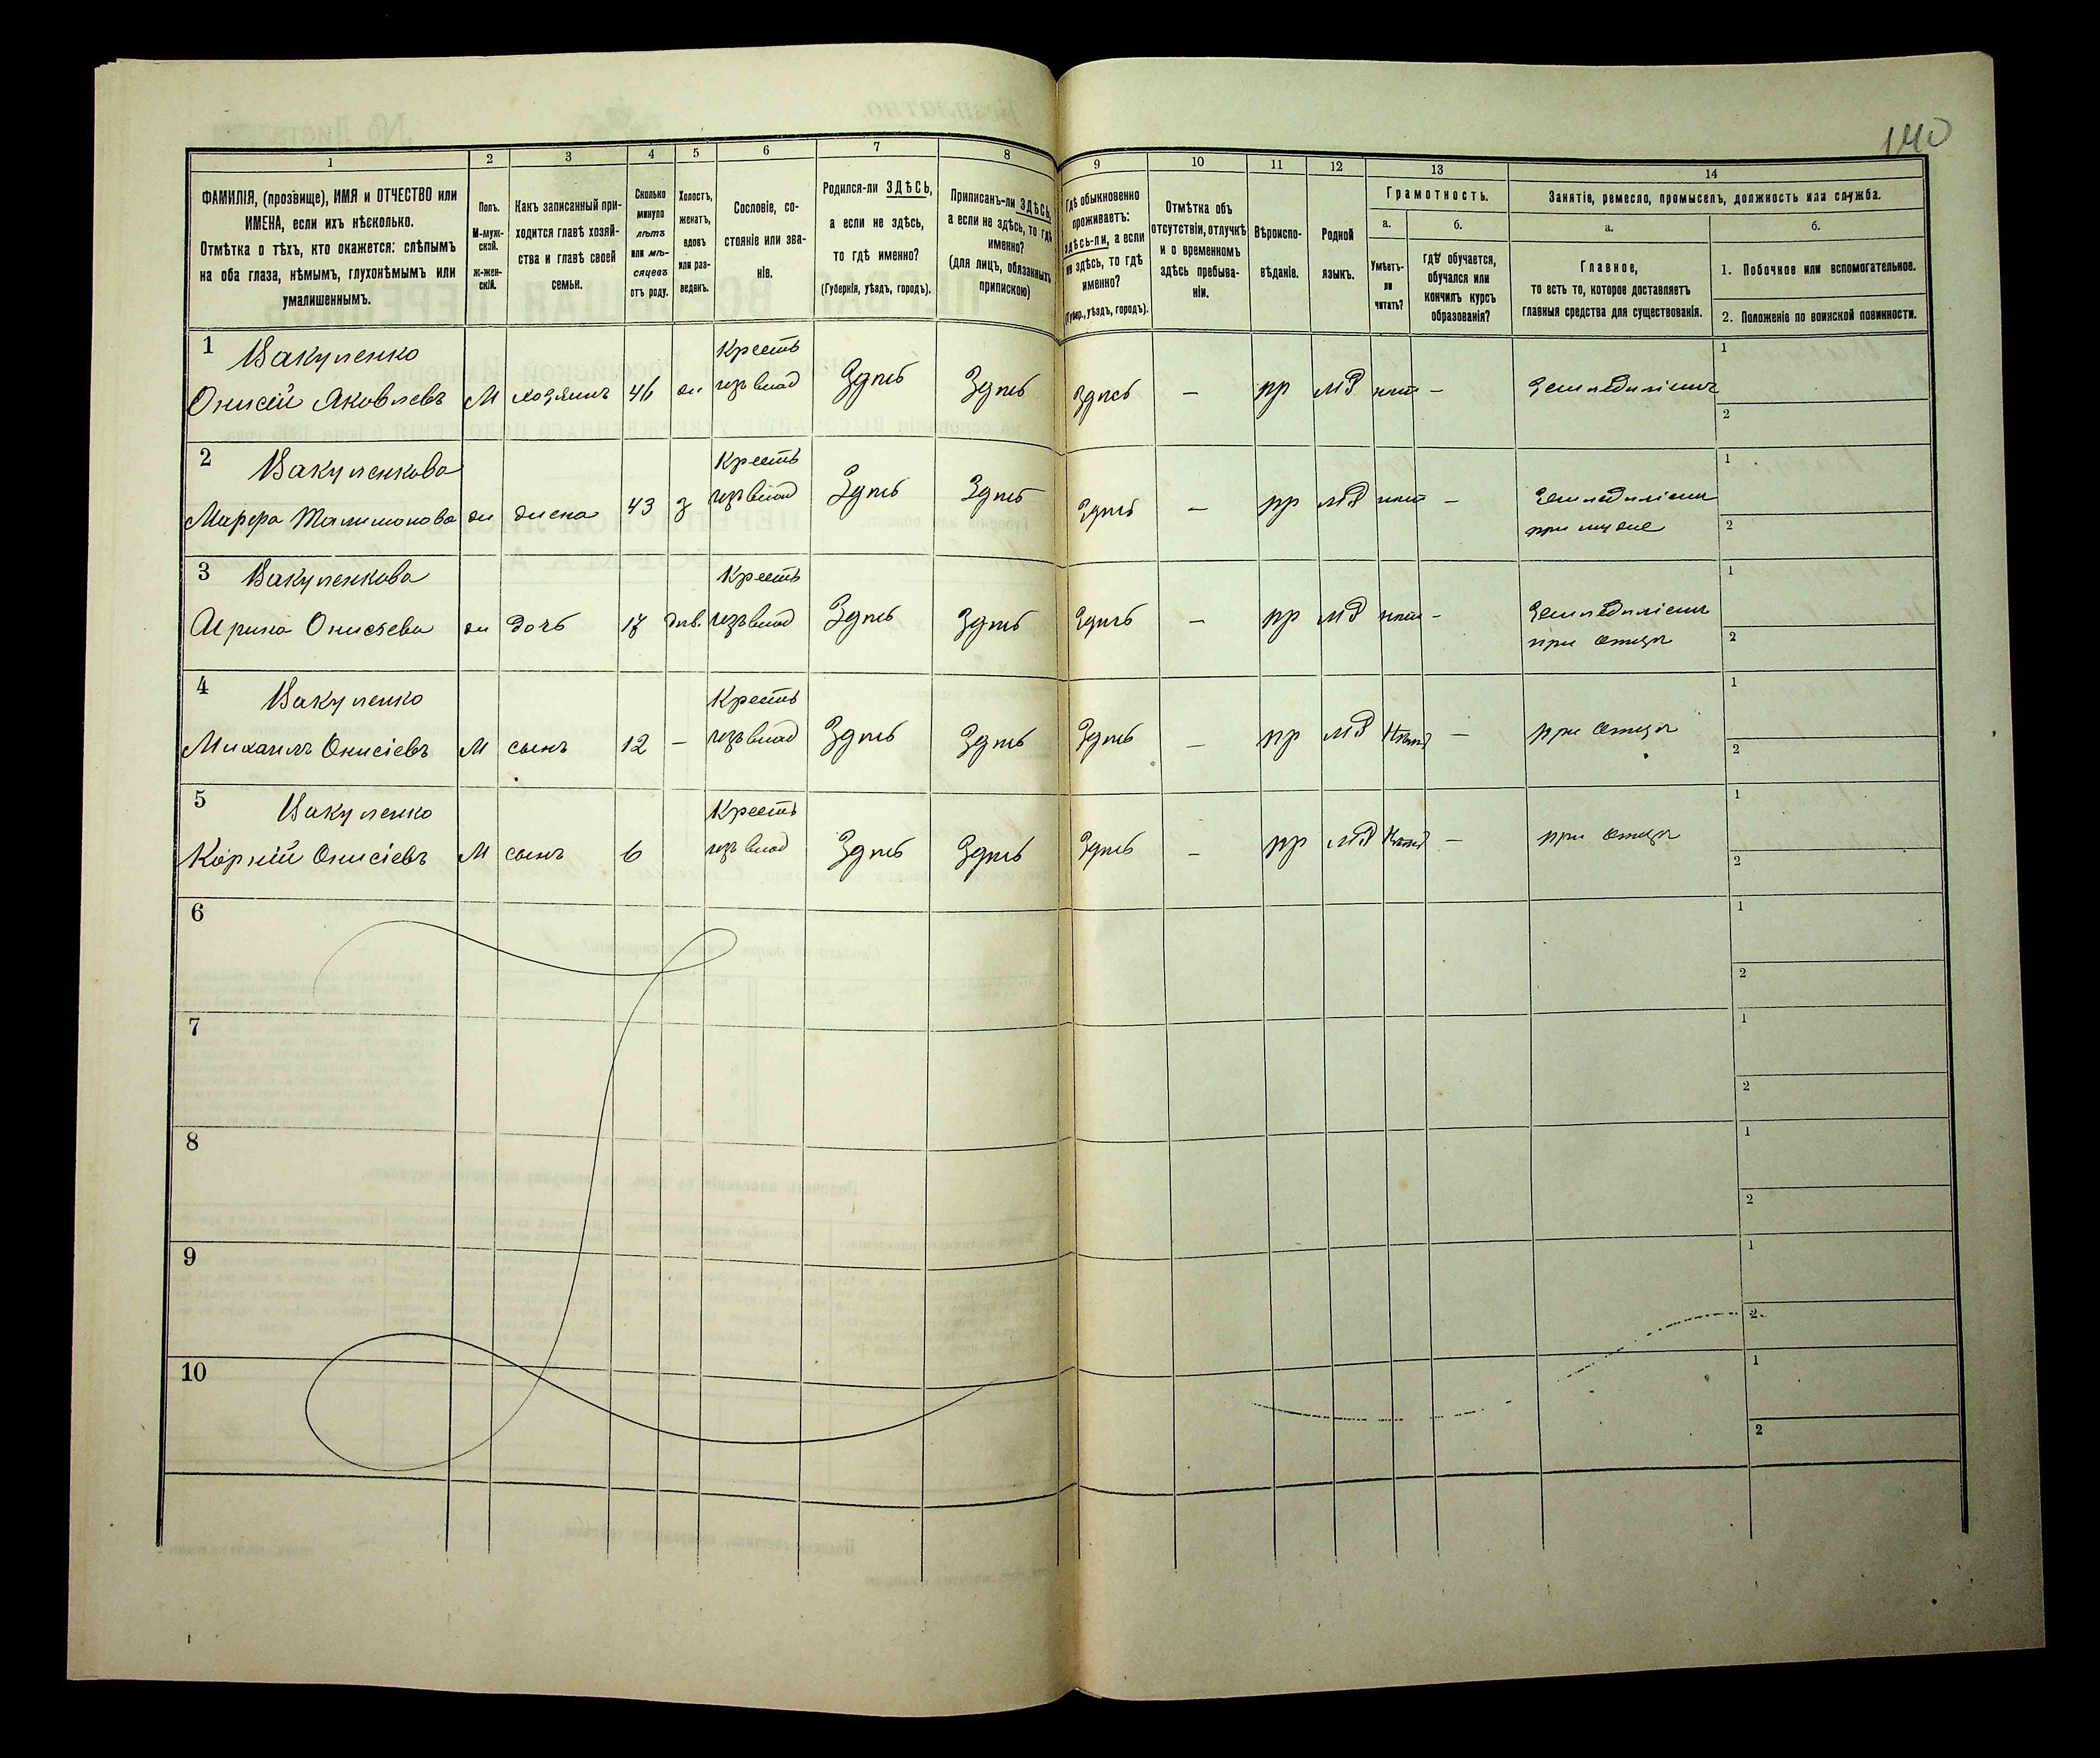 140
1 2 3 4 5 6 7 8 9 10 11 12 13 14
ФАМИЛІЯ, (прозвище), ИМЯ и ОТЧЕСТВО или
ИМЕНА, если ихъ нѣсколько.
Отмѣтка о тѣхъ, кто окажется: слѣпымъ
на оба глаза, нѣмымъ, глухонѣмымъ или
умалишеннымъ.
Полъ.
М-муж-
ской.
ж-жен-
скій.
Какъ записанный при-
ходится главѣ хозяй-
ства и главѣ своей
семьи.
Сколько
минуло
лѣтъ
или мѣ-
сяцевъ
отъ роду.
Холостъ,
женатъ,
вдовъ
или раз-
веденъ.
Сословіе, со-
стояніе или зва-
ніе.
Родился-ли ЗДѢСЬ,
а если не здѣсь,
то гдѣ именно?
(Губернія, уѣздъ, городъ).
Приписанъ-ли ЗДѢСЬ,
а если не здѣсь, то гдѣ
именно?
(для лицъ, обязанныхъ
припискою)
Гдѣ обыкновенно
проживаетъ:
здѣсь-ли, а если
не здѣсь, то гдѣ
именно?
(Губер., уѣздъ, городъ).
Отмѣтка объ
отсутствіи, отлучкѣ
и о временномъ
здѣсь пребыва-
ніи.
Вѣроиспо-
вѣданіе.
Родной
языкъ.
Грамотность.
а. б.
Умѣетъ-
ли
читать?
гдѣ обучается,
обучался или
кончилъ курсъ
образованія?
Занятіе, ремесло, промыселъ, должность или служба.
а. б.
Главное,
то есть то, которое доставляетъ
главныя средства для существованія.
1. Побочное или вспомогательное.
2. Положеніе по воинской повинности.
1 Вакуленко Крестъ 1
Онисій Яковлевъ М хозяинъ 46 ж изъ влад Здѣсь Здѣсь Здѣсь — пр мд нѣт — Земледѣліемъ
2
2 Вакуленкова Крестъ 1
Марфа Талимонова ж жена 43 з изъ влад Здѣсь Здѣсь Здѣсь — пр мд нѣт — Земледѣліемъ
при мужѣ 2
3 Вакуленкова Крестъ 1
Ирина Онисіева ж дочь 17 дѣв. изъ влад Здѣсь Здѣсь Здѣсь — пр мд нѣт — Земледѣліемъ
при отцѣ 2
4 Вакуленко Крестъ 1
Михаилъ Онисіевъ М сынъ 12 — изъ влад Здѣсь Здѣсь Здѣсь — пр мд Нѣтъ — при отцѣ
2
5 Вакуленко Крестъ 1
Корній Онисіевъ М сынъ 6 изъ влад Здѣсь Здѣсь Здѣсь — пр мд Нѣтъ — при отцѣ
2
6 1
2
7 1
2
8 1
2
9 1
2
10 1
2